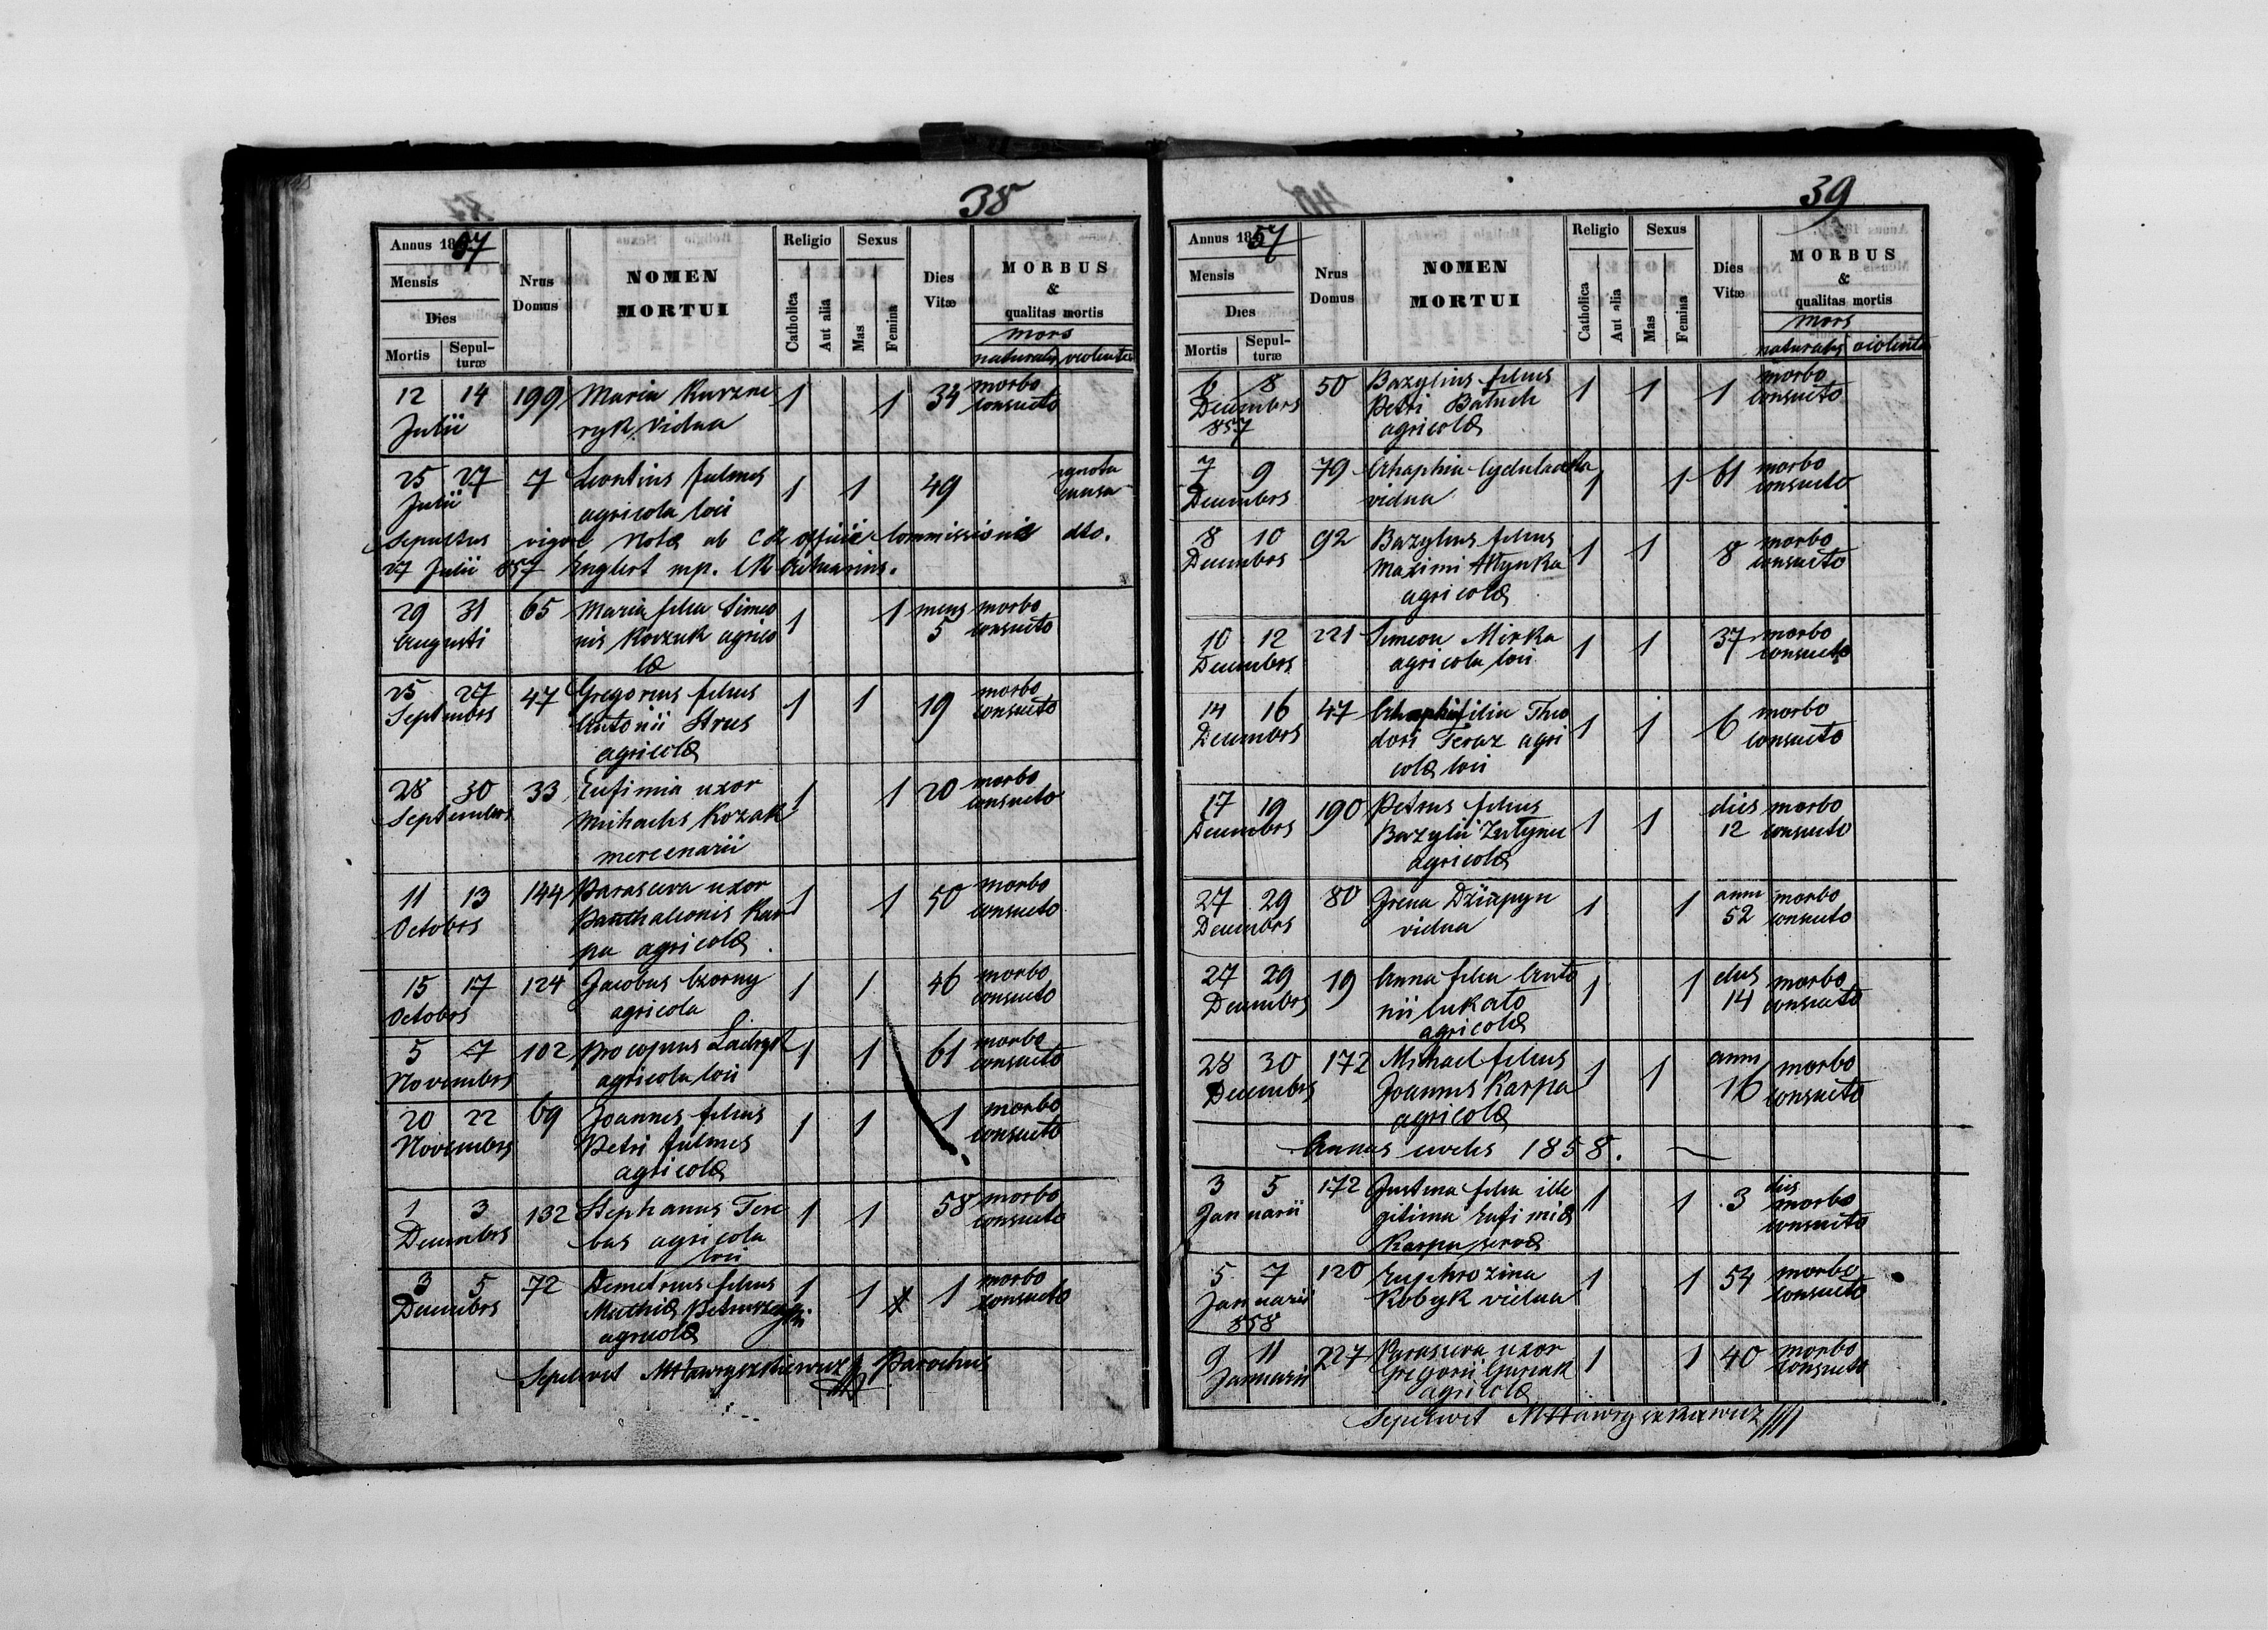 38
Annus 1857
Mensis
Dies
Mortis
Sepulturæ
Nrus Domus
NOMEN MORTUI
Religio
Catholica
Aut alia
Sexus
Mas
Femina
Dies Vitæ
MORBUS
&
qualitas mortis
mors
naturalis violenta
12 14 199 Maria Kurzne 1 1 34 morbo
Julii ryk vidua consueto
25 27 7 Leontius fulmes 1 1 49 ignota
Julii agricola loci causa
Sepultus vigore Notæ ab CR officii Commissionis dto.
27 Julii 857 Englert mp. CR Actuarius.
29 31 65 Maria filia Simeo 1 1 mens morbo
Augusti nis Kovzuk agrico 5 consueto
læ
25 27 47 Gregorius filius 1 1 19 morbo
Septembrs Antonii Strus consueto
agricolæ
28 30 33 Eufimia uxor 1 1 20 morbo
Septembrs Michaelis Kozak consueto
mercenarii
11 13 144 Parasceva uxor 1 1 50 morbo
Octobrs Panthaleonis Kar consueto
pa agricolæ
15 17 124 Jacobus Czorny 1 1 46 morbo
Octobrs agricola consueto
5 7 102 Procopius Ladryk 1 1 61 morbo
Novembrs agricola loci consueto
20 22 69 Joannes filius 1 1 1 morbo
Novembrs Petri fulmes consueto
agricolæ
1 3 132 Stephanus Tere 1 1 58 morbo
Decembrs bus agricola consueto
loci
3 5 72 Demetrius filius 1 1 1 morbo
Decembrs Mathiæ consueto
agricolæ
Sepelivit MHawryszkiewicz Parochus
39
Annus 1857
Mensis
Dies
Mortis
Sepulturæ
Nrus Domus
NOMEN MORTUI
Religio
Catholica
Aut alia
Sexus
Mas
Femina
Dies Vitæ
MORBUS
&
qualitas mortis
mors
naturalis violenta
6 8 50 Bazylius filius 1 1 1 morbo
Decembrs Petri Batuch consueto
857 agricolæ
7 9 79 Ahaphia 1 1 61 morbo
Decembrs vidua consueto
8 10 92 Bazylius filius 1 1 8 morbo
Decembrs Maximi Hlynka consueto
agricolæ
10 12 221 Simeon Mirka 1 1 37 morbo
Decembrs agricola loci consueto
14 16 47 filia Theo 1 1 6 morbo
Decembrs dori Teraz agri consueto
colæ loci
17 19 190 Petrus filius 1 1 dies morbo
Decembrs Bazylii Zutynec 12 consueto
agricolæ
27 29 80 Irena Dziupyn 1 1 anni morbo
Decembrs vidua 52 consueto
27 29 19 Anna filia Anto 1 1 dies morbo
Decembrs nii Lukato 14 consueto
agricolæ
28 30 172 Michael filius 1 1 anni morbo
Decembrs Joannis Karpa 16 consueto
agricolæ
Annus civilis 1858.
3 5 172 Justina filia ille 1 1 3 dies morbo
Januarii gitima Eufimiæ consueto
Karpa servæ
5 7 120 Euphrozina 1 1 54 morbo
Januarii Kobyk vidua consueto
858
9 11 227 Parasceva uxor 1 1 40 morbo
Januarii Gregorii Gusiak consueto
agricolæ
Sepelivit MHawryszkiewicz